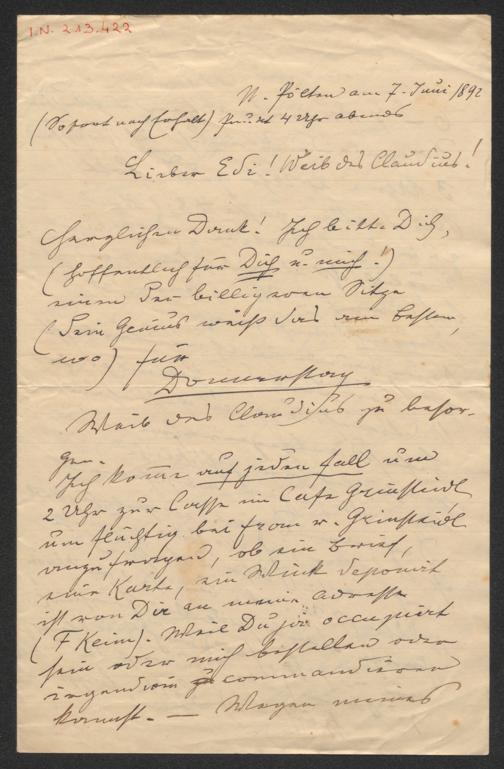 I.N. 213.422
St. Pölten am 7. Juni 1892
(Sofort nach Erhalt) Punkt 4 Uhr abends
Lieber Edi! Weib des Claudius!
Herzlichen Dank! Ich bitte Dich,
(hoffentlich für Dich u. mich!)
einen der billigeren Sitze
(Dein Genius weiß das am besten,
wo) für
Donnerstag
Weib des Claudius zu besor-
gen.
Ich komme auf jeden Fall um
2 Uhr zur Casse im Cafe Grinsteidl
um flüchtig bei Frau v. Grinsteidl
anzufragen, ob ein Brief,
eine Karte, ein Wink deponirt
ist von Dir an meine Adresse
(F Keim). Weil Du ja occupiert
sein oder mich bestellen oder
irgendwie commandieren
kannst. — Wegen meines